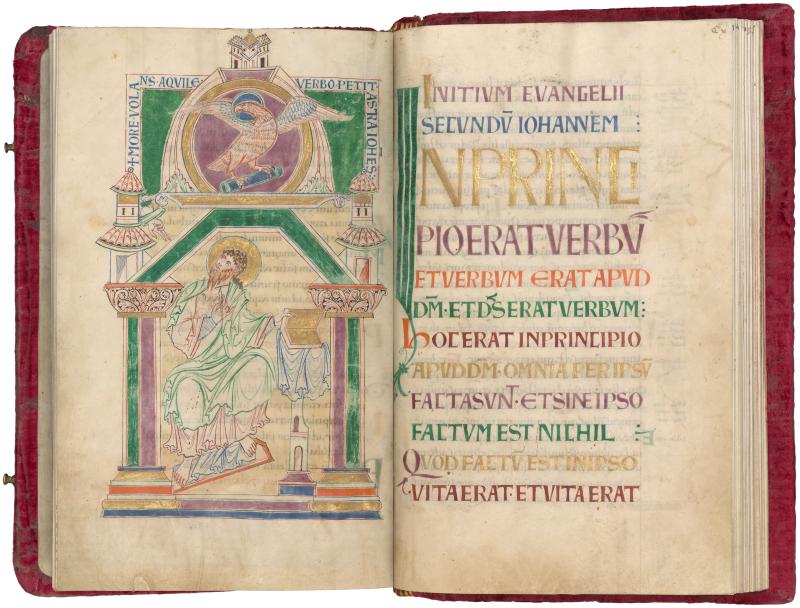 + MORE VOLANS AQVILE VERBO PETIT ASTRA IOHES
INITIVM EVANGELII
SECVNDV̅ IOHANNEM :
INPRINCI
PIO ERAT VERBV̅
ET VERBVM ERAT APVD
DM̅· ET DS̅ ERAT VERBVM:
HOC ERAT INPRINCIPIO
APVD DM̅· OMNIA PER IPSV̅
FACTA SVNT· ET SINE IPSO
FACTVM EST NICHIL
QVOD FACTV̅ EST INIPSO
VITA ERAT· ET VITA ERAT